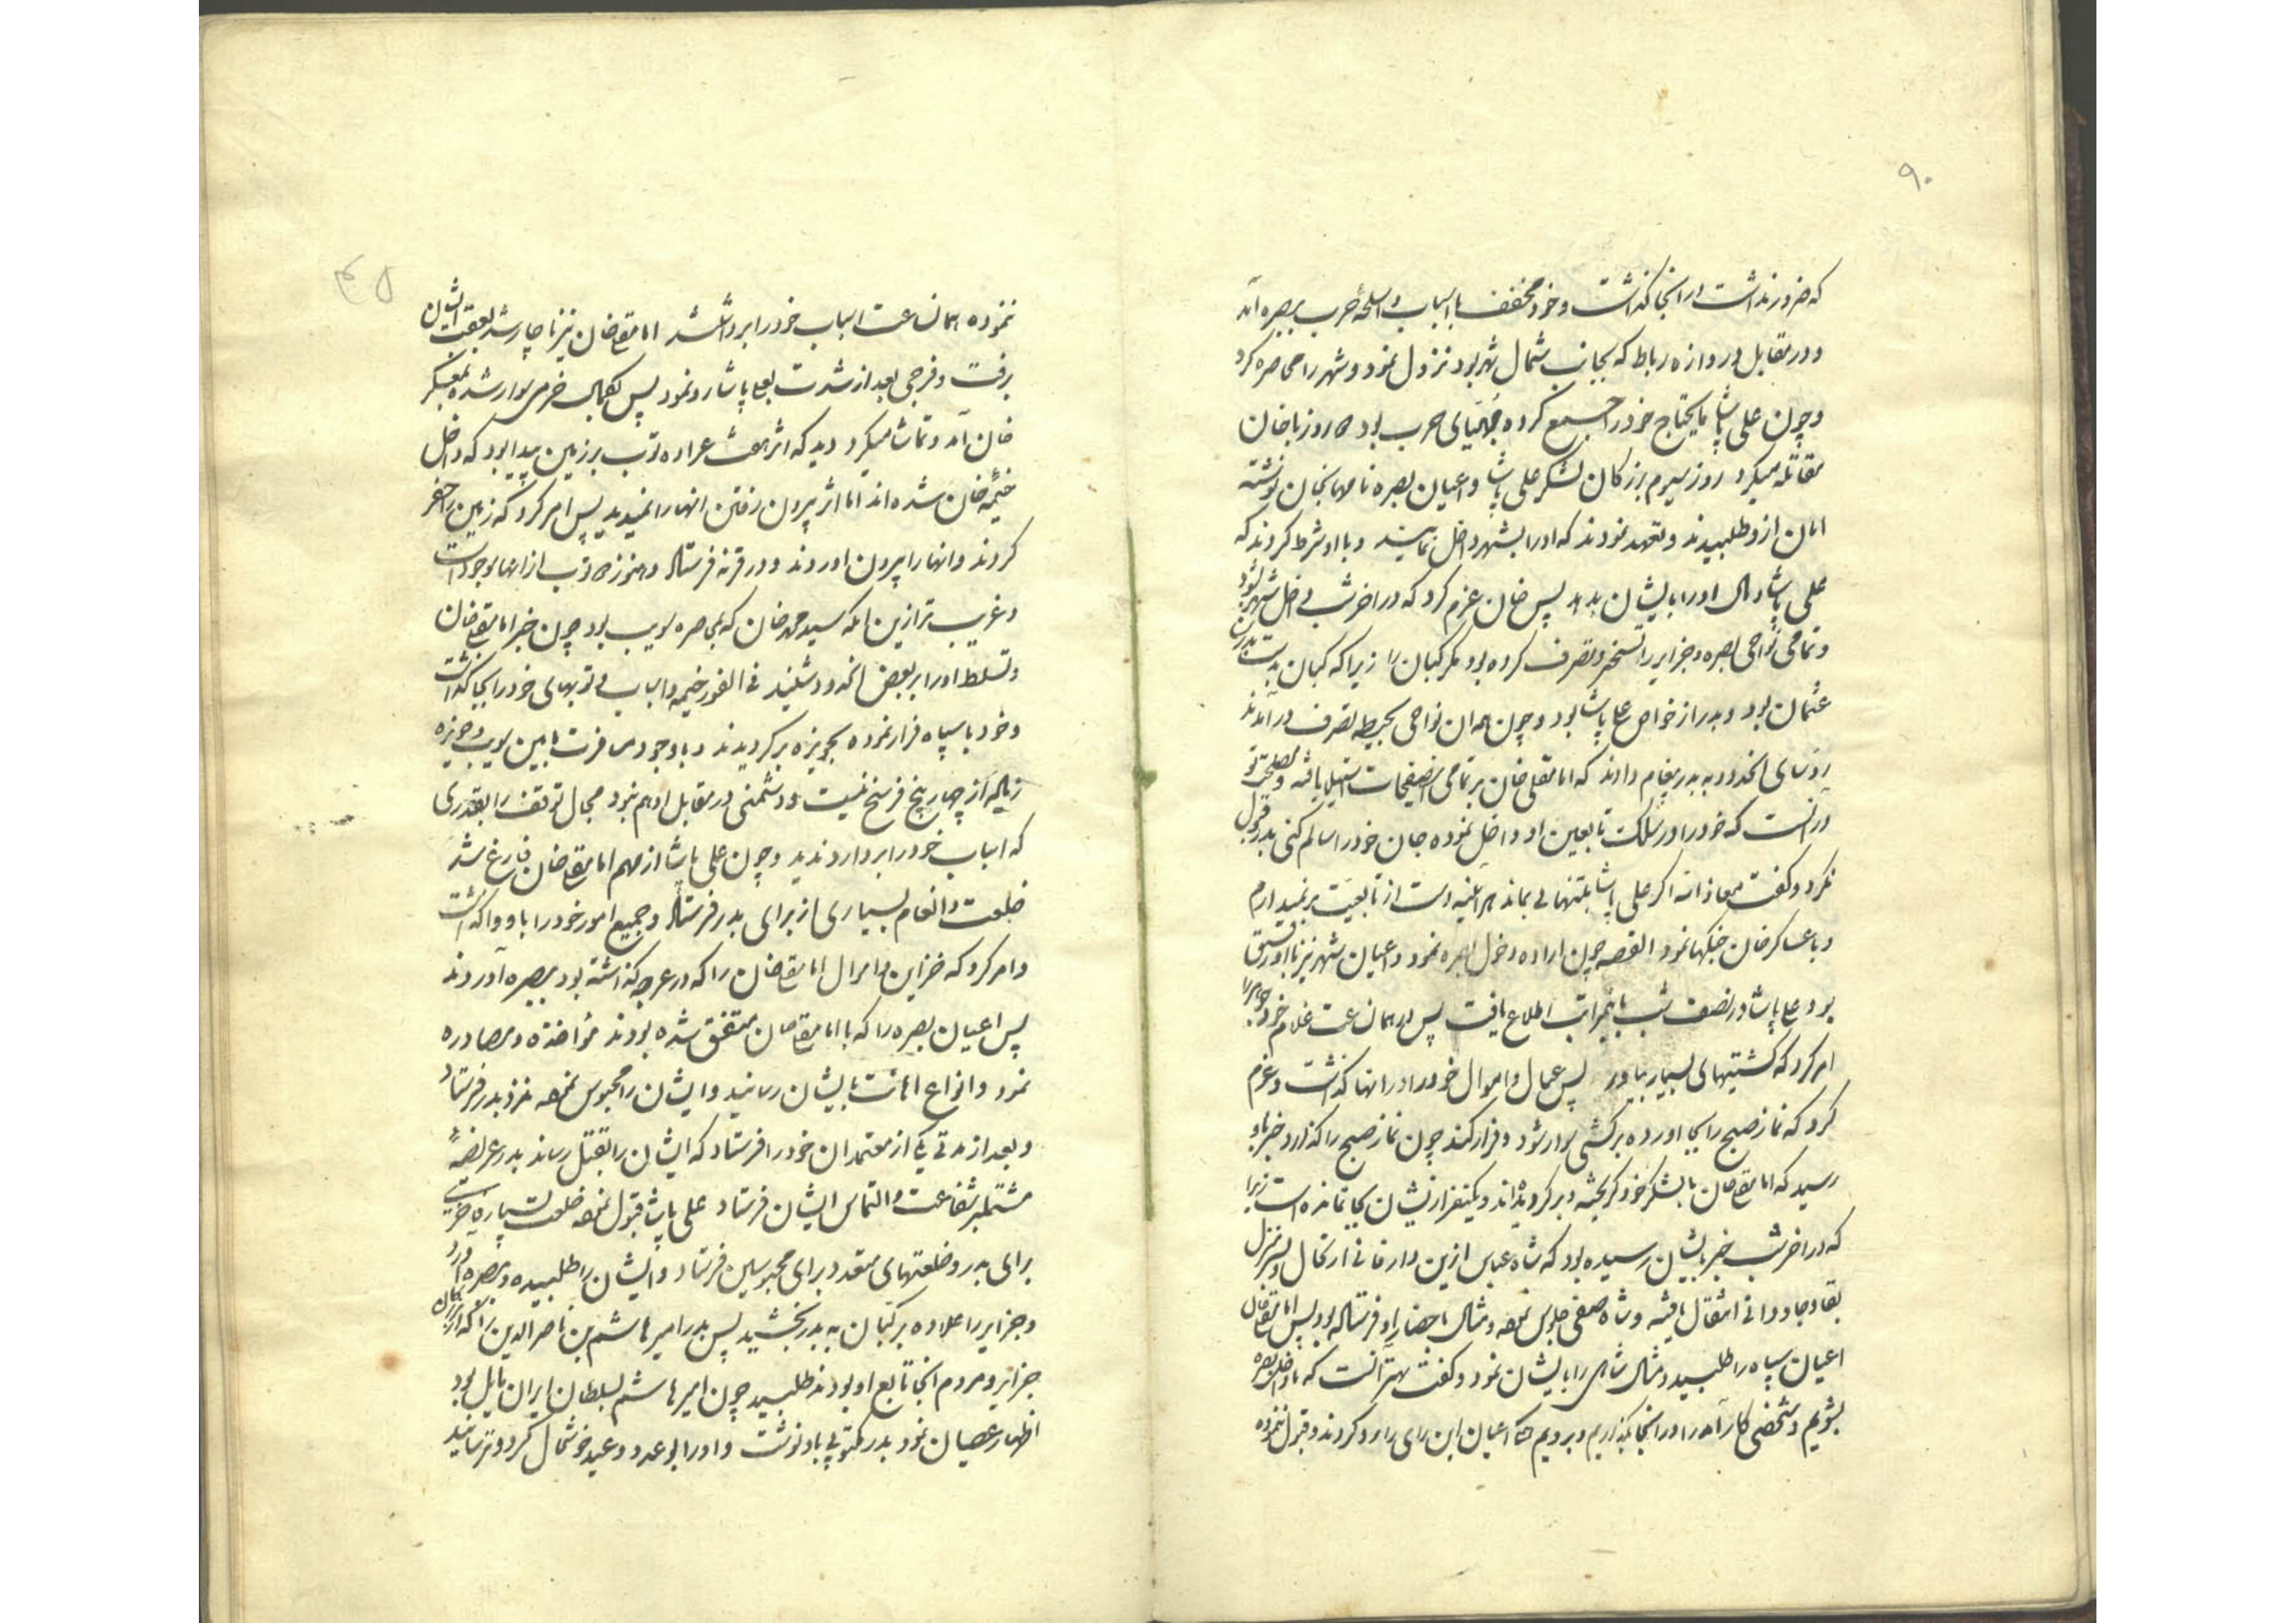 ۹۰
که ضرور نداشت در انجا گذاشت و خود مخفف با اسباب و اسلحهٔ حرب ببصره آمد
و در مقابل دروازه رباط که بجانب شمال شهر بود نزول نمود و شهر را محاصره کرد
و چون علی پاشا مایحتاج خود را جمع کرده و مهیای حرب بود ۳ روز با خان
مقاتله میکرد روز سیوم بزرکان لشکر علی پاشا و اعیان بصره نامها بخان نوشته
امان ازو طلبیدند و تعهد نمودند که او را بشهر داخل نمایند و با او شرط کردند که
علی پاشا و مال او را بایشان بدهد پس خان عزم کرد که در اخر شب داخل شهر شود
و تمامی نواحی بصره و جزایر را تسخیر و تصرف کرده بود مکر کبان را زیرا که کبان بدست بدر بن
عثمان بود و بدر از خواص علی پاشا بود و چون همه ان نواحی بحیطه تصرف در آمدند
روسای انحدود به بدر پیغام دادند که امامقلی خان بر تمامی این صفحات استیلا یافته و مصلحت تو
در انست که خود را در سلک تابعین او داخل نموده جان خود را سالم کنی بدر قبول
نکرد و کفت معاذ الله اکر علی پاشا بتنهائی بماند هر اینه دست از تابعیت بر نمیدارم
و با عساکر خان جنکها نمود القصه چون اراده دخول بصره نمود و اعیان شهر نیز با او متفق
بود علی پاشا در نصف شب باینمراتب اطلاع یافت پس در همان ساعت غلام خود را
امر کرد که کشتیهای بسیار بیاورد پس عیال و اموال خود را در انها گذاشت و عزم
کرد که نماز صبح را بجا اورده بر کشتی سوار شود و فرار کند چون نماز صبح را گذارد خبر باو
رسید که امامقلی خان با لشکر خود کریخته و بر کردیده اند و یکنفر از ایشان بجا نمانده است زیرا
که در اخر شب خبر بایشان رسیده بود که شاه عباس ازین دار فانی ارتحال و بسر منزل
بقا و جاودانی انتقال یافته و شاه صفی جلوس نموده و مثال باحضار او فرستاده بود پس امامقلی خان
اعیان سپاه را طلبید و مثال شاهی را بایشان نمود و کفت بهتر آنست که ما داخل بصره
بشویم و شخصی کار آمد را در انجا بگذاریم و برویم اعیان این رای را رد کردند و قبول ننموده
۴۵
ننموده همان ساعت اسباب خود را برداشتند امامقلی خان نیز ناچار شد بعقب ایشان
برفت و فرجی بعد از شدت بعلی پاشا رو نمود پس بکمال خرمی سوار شده بمعسکر
خان آمد و تماشا میکرد دید که اثر هشت عراده توپ بر زمین پیدا بود که داخل
خیمهٔ خان شده اند اما اثر بیرون رفتن انها را نمیدید پس امر کرد که زمین را حفر
کردند و انها را بیرون اوردند و در قرنه فرستاد و هنوز ۳ توپ از انها موجود است
و غریب تر ازین انکه سید محمد خان که بمحاصره سویب بود چون خبر امامقلی خان
و تسلط او را بر بعض انحدود شنید فی الفور خیمه و اسباب و توپهای خود را بجا گذاشت
و خود با سپاه فرار نموده بحویزه بر کردیدند و با وجود مسافرت مابین سویب و حویزه
زیاده از چهار پنج فرسخ نیست و دشمنی در مقابل او هم نبود مجال توقف را بقدری
که اسباب خود را بردارد ندید و چون علی پاشا از مهم امامقلی خان فارغ شد
خلعت و انعام بسیاری از برای بدر فرستاد و جمیع امور خود را باو واگذاشت
و امر کرد که خزاین و اموال امامقلی خان را که در عرجه گذاشته بود ببصره آوردند
پس اعیان بصره را که با امامقلی خان متفق شده بودند مؤاخذه و مصادره
نمود و انواع اهانت بایشان رسانید و ایشان را محبوس نموده نزد بدر فرستاد
و بعد از مدتی یکی از معتمدان خود را فرستاد که ایشان را بقتل رساند بدر عریضهٔ
مشتملبر شفاعت و التماس ایشان فرستاد علی پاشا قبول نموده خلعت بسیار
برای بدر و خلعتهای متعدد برای محبوسین فرستاد و ایشان را طلبیده و ببصره آورد
و جزایر را علاوه بر کبان به بدر بخشید پس بدر امیر هاشم بن ناصر الدین را که
جزایر و مردم انجا تابع او بودند طلبید چون امیر هاشم بسلطان ایران مایل بود
اظهار عصیان نمود بدر مکتوبی باو نوشت و او را بوعد و وعید خوشحال کرد و ترسانید